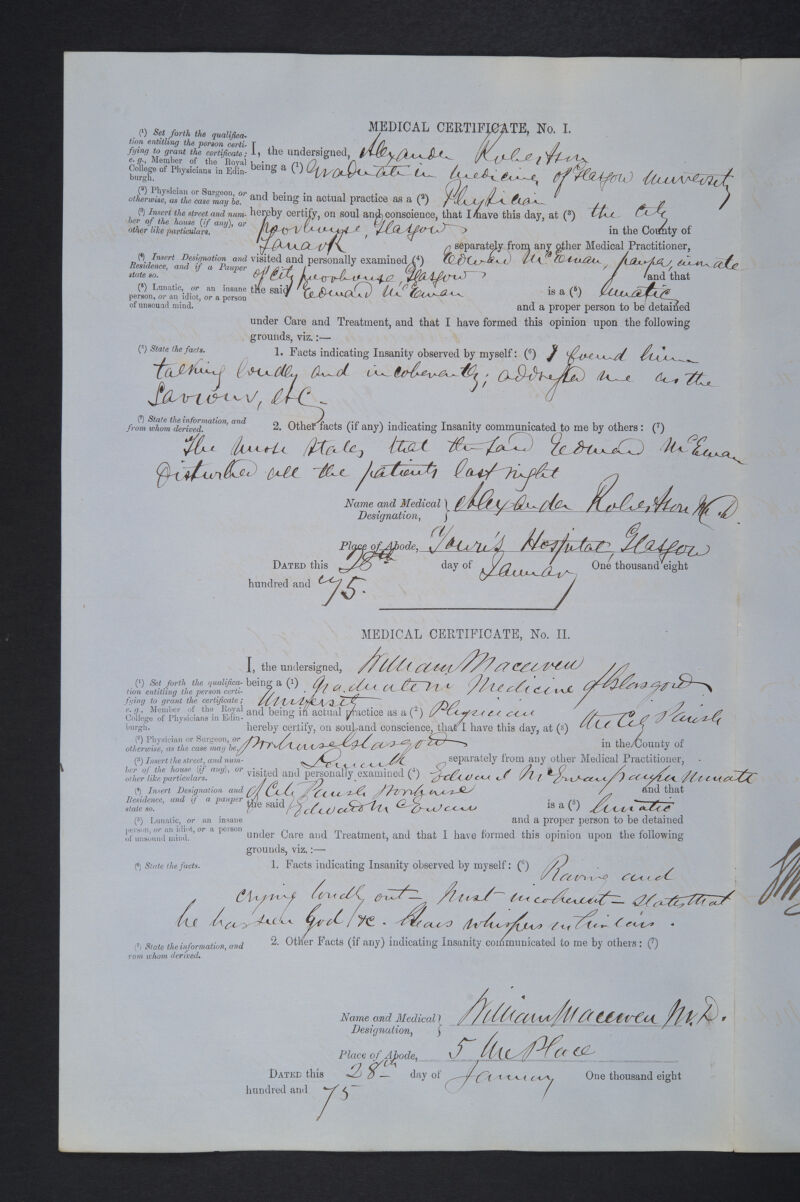 MEDICAL CERTIFICATE, No. I.
(¹) Set forth the qualifica-
tion entitling the person certi-
fying to grant the certificate;
e. g., Member of the Royal
College of Physicians in Edin-
burgh.
I, the undersigned, Alexander Robertson
being a (¹) Graduate in medicine, of Glasgow University
(²) Physician or Surgeon, or
otherwise, as the case may be.
and being in actual practice as a (²) Physician
(³) Insert the street and num-
ber of the house (if any), or
other like particulars.
hereby certify, on soul and conscience, that I have this day, at (³) the City
poorhouse, Glasgow in the County of
Lanark separately from any other Medical Practitioner,
(⁴) Insert Designation and
Residence, and if a Pauper
state so.
visited and personally examined (⁴) Edward McEwan, pauper, inmate
of City poorhouse Glasgow and that
(⁵) Lunatic, or an insane
person, or an idiot, or a person
of unsound mind.
the said Edward McEwan is a (⁵) lunatic
and a proper person to be detained
under Care and Treatment, and that I have formed this opinion upon the following
grounds, viz.:—
(⁶) State the facts.
1. Facts indicating Insanity observed by myself: (⁶) I found him
talking loudly and incoherently; addressed me as the
Saviour, &c
(⁷) State the information, and
from whom derived.
2. Other facts (if any) indicating Insanity communicated to me by others: (⁷)
The nurse states that the said Edward McEwan
disturbed all the patients last night
Name and Medical Designation, Alexander Robertson M.D.
Place of Abode, Town's Hospital, Glasgow
DATED this 28th day of January One thousand eight
hundred and 75.
MEDICAL CERTIFICATE, No. II.
I, the undersigned, William Macewen
(¹) Set forth the qualifica-
tion entitling the person certi-
fying to grant the certificate;
e. g., Member of the Royal
College of Physicians in Edin-
burgh.
being a (¹) Graduate in Medicine of Glasgow
University
and being in actual practice as a (²) Physician
hereby certify, on soul and conscience, that I have this day, at (³) the City Parish
(²) Physician or Surgeon, or
otherwise, as the case may be.
Poorhouse Glasgow in the County of
(³) Insert the street, and num-
ber of the house (if any), or
other like particulars.
Lanark separately from any other Medical Practitioner,
visited and personally examined (⁴) Edward McEwan pauper inmate
(⁴) Insert Designation and
Residence, and if a pauper
state so.
of City Parish Poorhouse and that
the said Edward McEwan is a (⁵) lunatic
(⁵) Lunatic, or an insane
person, or an idiot, or a person
of unsound mind.
and a proper person to be detained
under Care and Treatment, and that I have formed this opinion upon the following
grounds, viz.:—
(⁶) State the facts.
1. Facts indicating Insanity observed by myself: (⁶) Raving and
crying loudly out – Most incoherent – states that
he has seen God &c. Hears whispers in his ears.
(⁷) State the information, and
rom whom derived.
2. Other Facts (if any) indicating Insanity communicated to me by others: (⁷)
Name and Medical Designation, William Macewen M.D.
Place of Abode, 5 Place
DATED this 28th day of January One thousand eight
hundred and 75